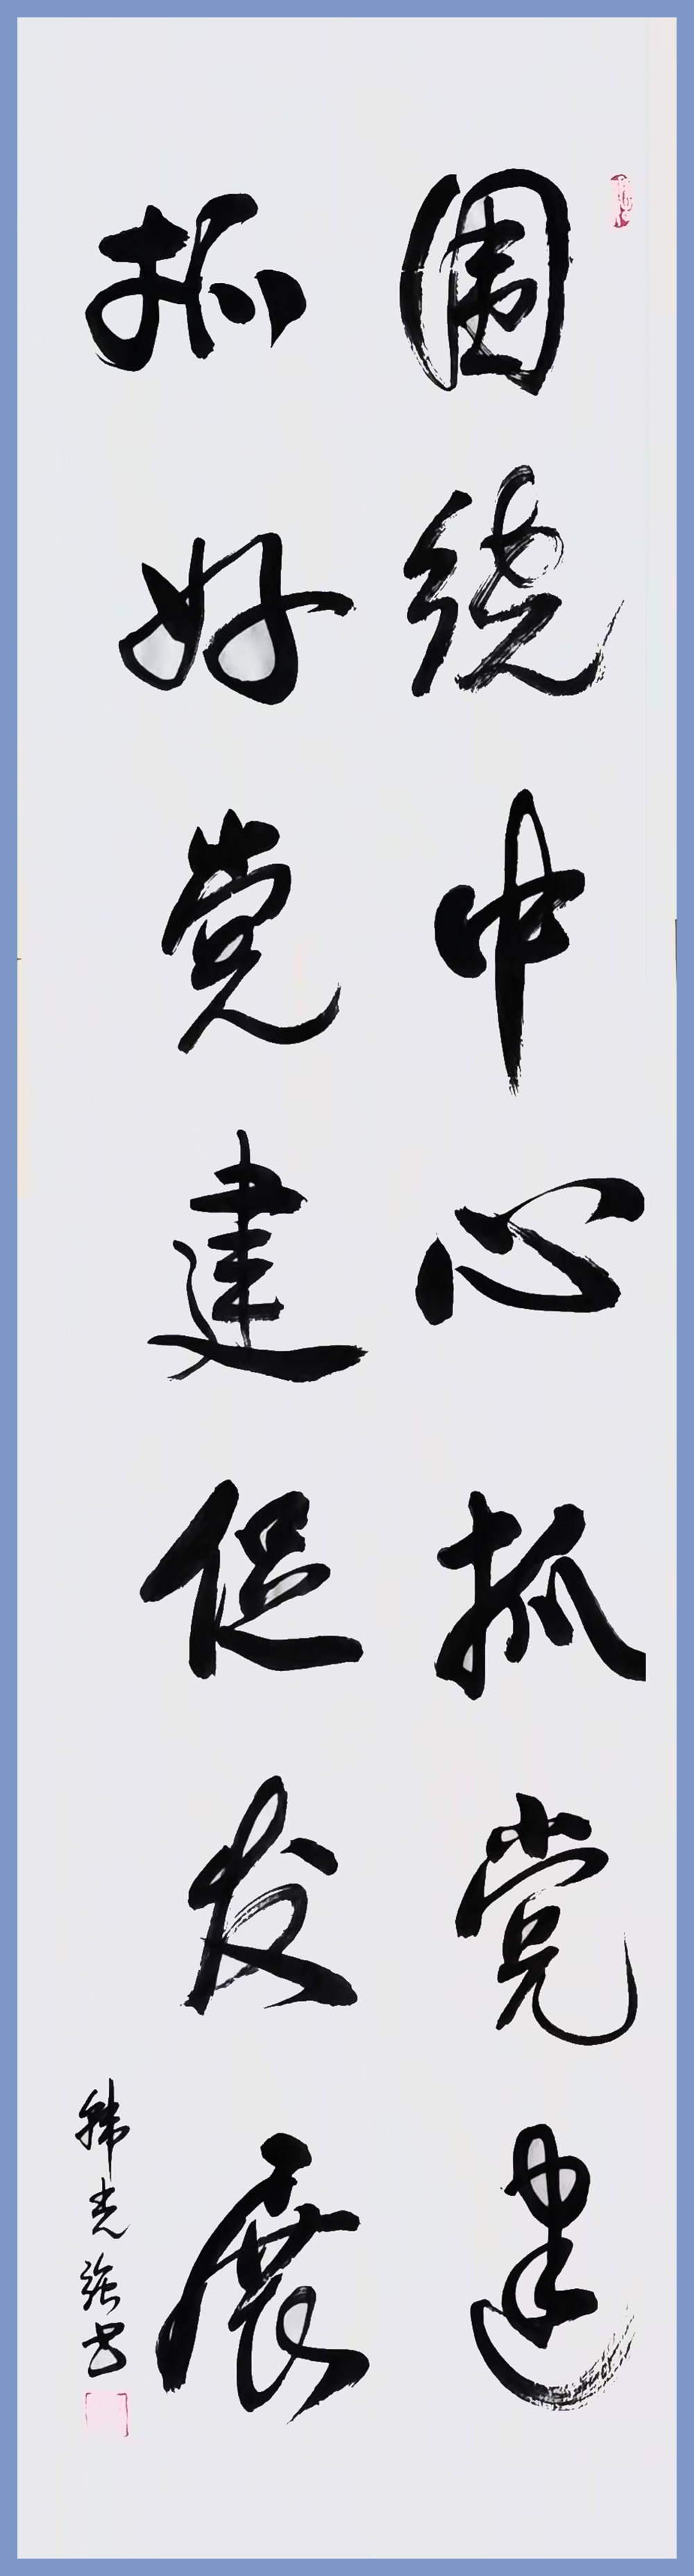 围绕中心抓党建
抓好党建促发展
韩光强书